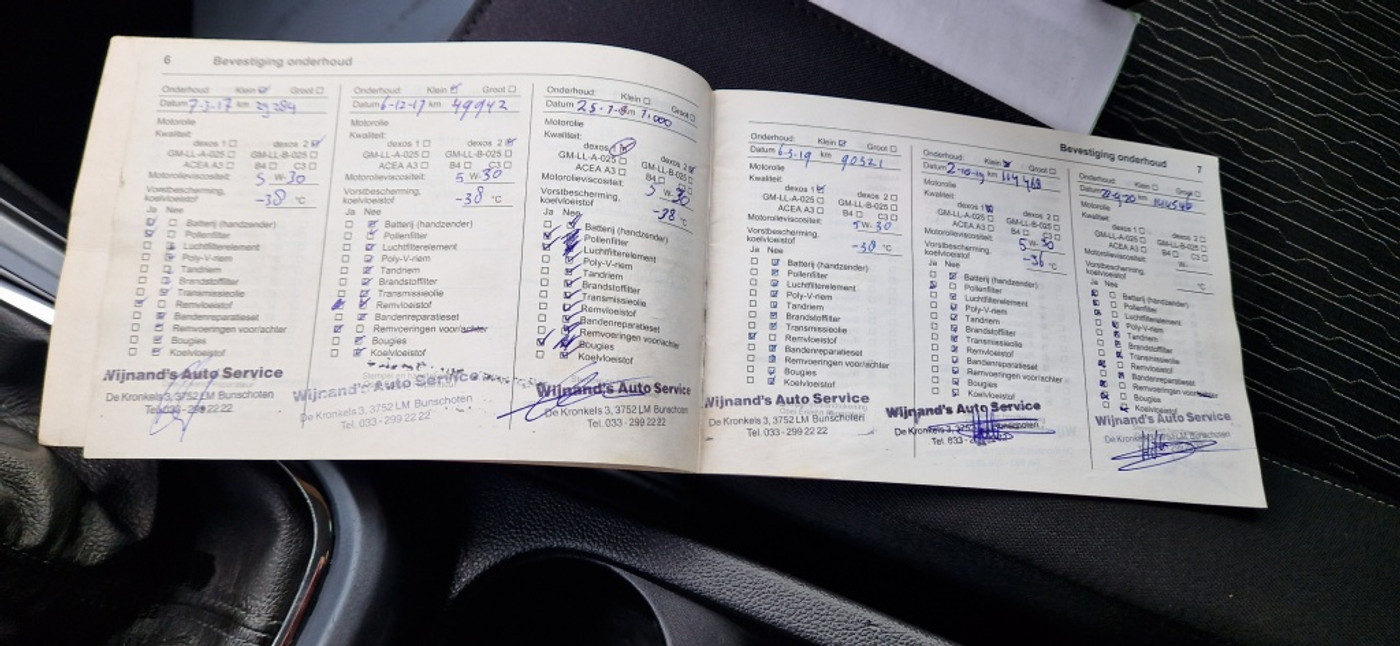 6 Bevestiging onderhoud
Onderhoud: Klein Groot
Datum 7-3-17 km
Motorolie
Kwaliteit:
dexos 1 dexos 2
GM-LL-A-025 GM-LL-B-025
ACEA A3 B4 C3
Motorolieviscositeit: 5 W-30
Vorstbescherming,
koelvloeistof -38 °C
Ja Nee
Batterij (handzender)
Pollenfilter
Luchtfilterelement
Poly-V-riem
Tandriem
Brandstoffilter
Transmissieolie
Remvloeistof
Bandenreparatieset
Remvoeringen voor/achter
Bougies
Koelvloeistof
Wijnand's Auto Service
De Kronkels 3, 3752 LM Bunschoten
Tel. 033 - 299 22 22
Onderhoud: Klein Groot
Datum 6-12-17 km 49942
Motorolie
Kwaliteit:
dexos 1 dexos 2
GM-LL-A-025 GM-LL-B-025
ACEA A3 B4 C3
Motorolieviscositeit: 5 W-30
Vorstbescherming,
koelvloeistof -38 °C
Ja Nee
Batterij (handzender)
Pollenfilter
Luchtfilterelement
Poly-V-riem
Tandriem
Brandstoffilter
Transmissieolie
Remvloeistof
Bandenreparatieset
Remvoeringen voor/achter
Bougies
Koelvloeistof
Wijnand's Auto Service
De Kronkels 3, 3752 LM Bunschoten
Tel. 033 - 299 22 22
Onderhoud: Klein Groot
Datum km
Motorolie
Kwaliteit:
dexos 1 dexos 2
GM-LL-A-025 GM-LL-B-025
ACEA A3 B4
Motorolieviscositeit: 5 W-30
Vorstbescherming,
koelvloeistof -38 °C
Ja Nee
Batterij (handzender)
Pollenfilter
Luchtfilterelement
Poly-V-riem
Tandriem
Brandstoffilter
Transmissieolie
Remvloeistof
Bandenreparatieset
Remvoeringen voor/achter
Bougies
Koelvloeistof
Wijnand's Auto Service
De Kronkels 3, 3752 LM Bunschoten
Tel. 033 - 299 22 22
Bevestiging onderhoud 7
Onderhoud: Klein Groot
Datum km 90521
Motorolie
Kwaliteit:
dexos 1 dexos 2
GM-LL-A-025 GM-LL-B-025
ACEA A3 B4 C3
Motorolieviscositeit: 5W-30
Vorstbescherming,
koelvloeistof -38 °C
Ja Nee
Batterij (handzender)
Pollenfilter
Luchtfilterelement
Poly-V-riem
Tandriem
Brandstoffilter
Transmissieolie
Remvloeistof
Bandenreparatieset
Remvoeringen voor/achter
Bougies
Koelvloeistof
Wijnand's Auto Service
De Kronkels 3, 3752 LM Bunschoten
Tel. 033 - 299 22 22
Onderhoud: Klein Groot
Datum 2-10-19 km
Motorolie
Kwaliteit:
dexos 1 dexos 2
GM-LL-A-025 GM-LL-B-025
ACEA A3 B4 C3
Motorolieviscositeit: 5W-30
Vorstbescherming,
koelvloeistof -36 °C
Ja Nee
Batterij (handzender)
Pollenfilter
Luchtfilterelement
Poly-V-riem
Tandriem
Brandstoffilter
Transmissieolie
Remvloeistof
Bandenreparatieset
Remvoeringen voor/achter
Bougies
Koelvloeistof
Wijnand's Auto Service
De Kronkels 3, Bunschoten
Tel. 033
Onderhoud: Klein Groot
Datum km
Motorolie
Kwaliteit:
dexos 1 dexos 2
GM-LL-A-025 GM-LL-B-025
ACEA A3 B4 C3
Motorolieviscositeit: W-
Vorstbescherming,
koelvloeistof °C
Ja Nee
Batterij (handzender)
Pollenfilter
Luchtfilterelement
Poly-V-riem
Tandriem
Brandstoffilter
Transmissieolie
Remvloeistof
Bandenreparatieset
Remvoeringen
Bougies
Koelvloeistof
Wijnand's Auto Service
De Kronkels 3, 3752 LM Bunschoten